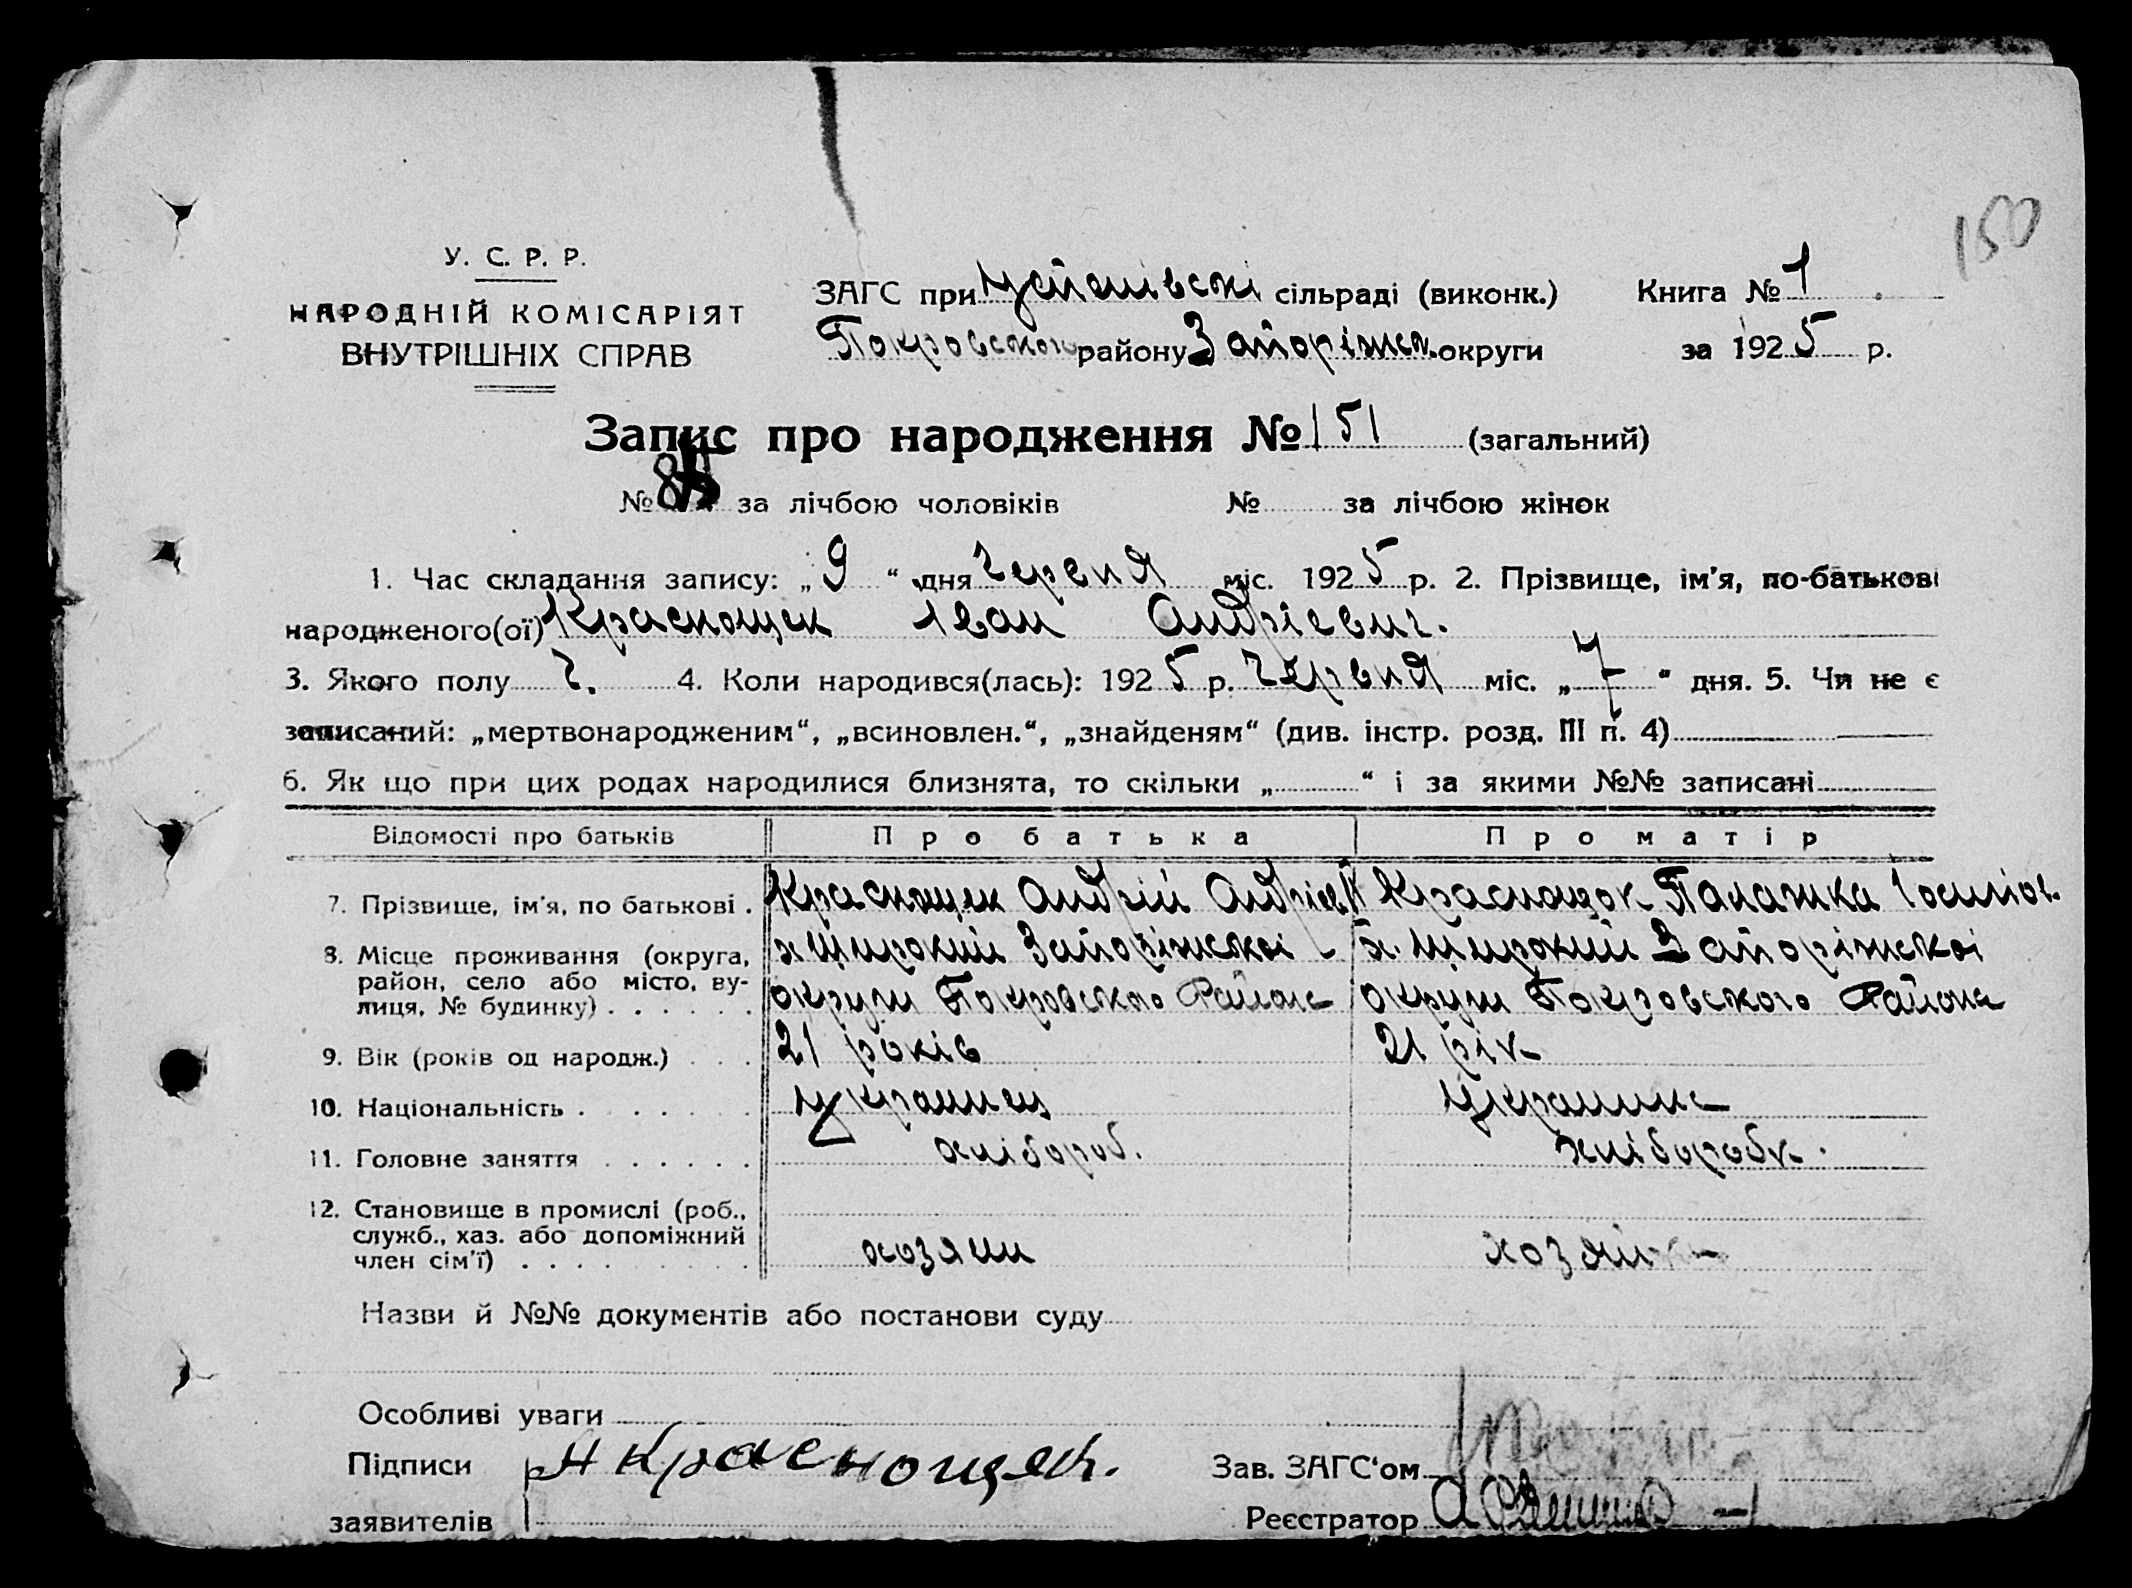 150
У. С. Р. Р.
НАРОДНІЙ КОМІСАРІЯТ
ВНУТРІШНІХ СПРАВ
ЗАГС при сільраді (виконк.)
Покровського району Запоріжск. округи
Книга № 1
за 1925 р.
Запис про народження № 151 (загальний)
№ за лічбою чоловіків № за лічбою жінок
1. Час складання запису: „9“ дня червня міс. 1925 р. 2. Прізвище, ім'я, по-батькові
народженого(ої) Краснощек Іван Андрієвич.
3. Якого полу ч. 4. Коли народився(лась): 1925 р. червня міс. „7“ дня. 5. Чи не є
записаний: „мертвонародженим“, „всиновлен.“, „знайденям“ (див. інстр. розд. III п. 4)
6. Як що при цих родах народилися близнята, то скільки „ “ і за якими №№ записані
Відомості про батьків Про батька Про матір
7. Прізвище, ім'я, по батькові . Краснощек Андрій Андрієв Краснощок Палажка Іосипов.
8. Місце проживання (округа, район, село або місто, вулиця, № будинку) . . . . . .
х Широкий Запоріжскоі х. Широкий Запоріжскоі
округи Покровського Района округи Покровського Района
9. Вік (років од народж.) . . . 21 років 21 рік
10. Національність . . . . . . . Украинец Украинка
11. Головне заняття . . . . . . хлібороб. хліборобк.
12. Становище в промислі (роб., служб., хаз. або допоміжний член сім'ї) . . . . . . . . .
хозяин хозяйка
Назви й №№ документів або постанови суду
Особливі уваги
Підписи заявителів А Краснощек.
Зав. ЗАГС'ом
Реєстратор